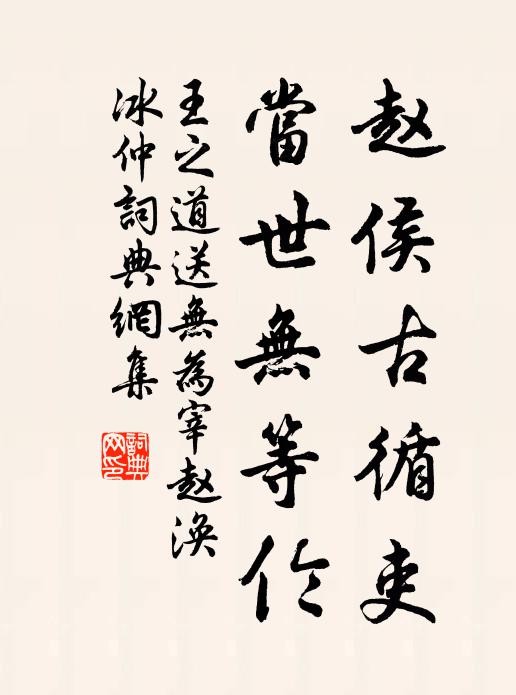 赵侯古循吏
當世無等伦
王之道送無為宰赵渙
冰仲詞典網集
詞典网印